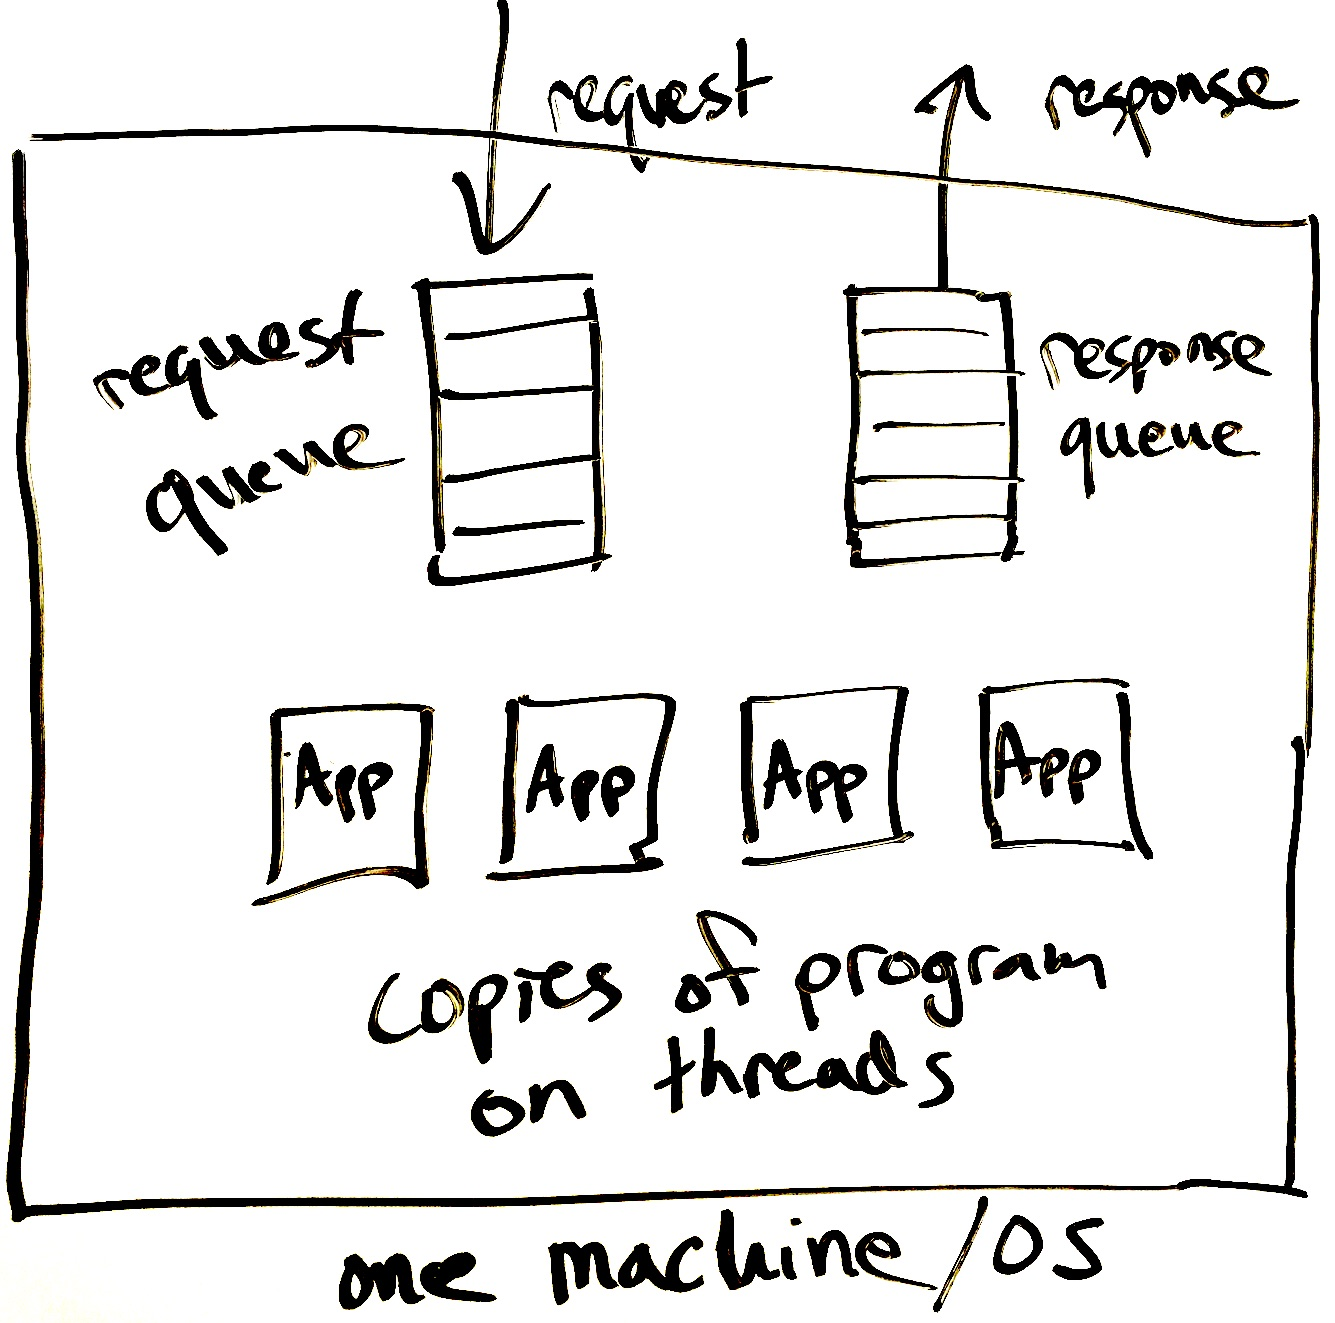 request
response
request
queue
response
queue
App
App
App
App
copies of program
on threads
one machine/OS